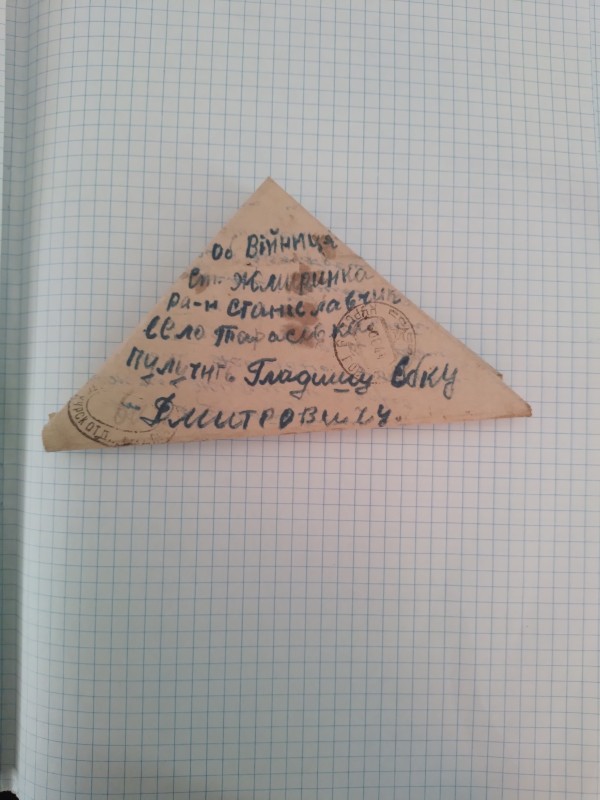 об Війниця
ст. Жмиринка
ра-н станеславчик
село Тарасівка
пулучить Гладишу
Дмитровичу.